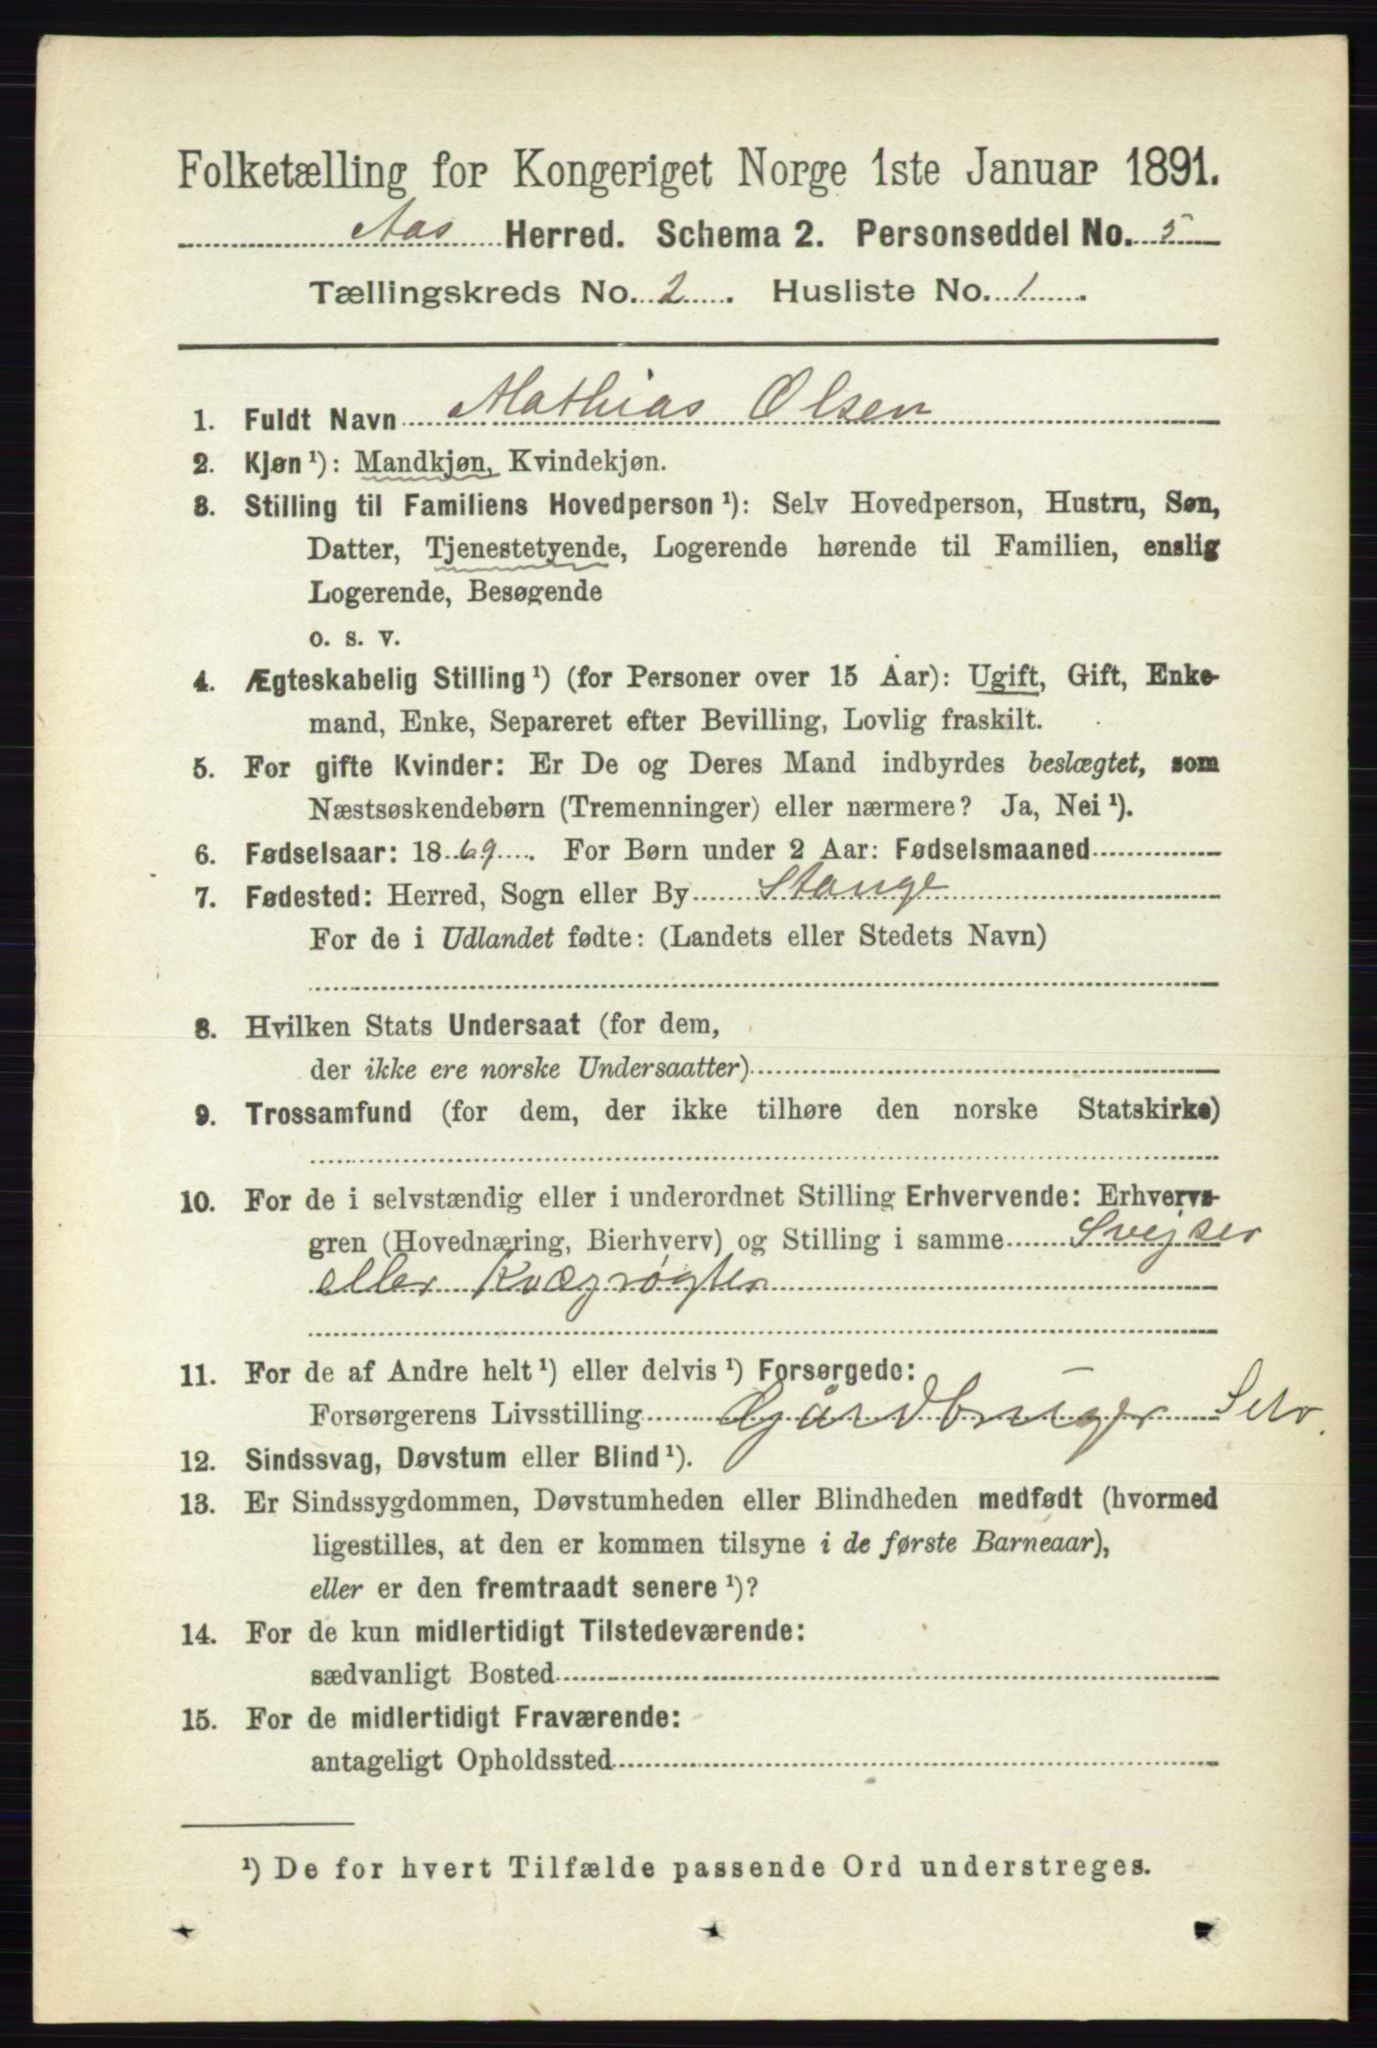 Folketælling for Kongeriget Norge 1ste Januar 1891.
Aas Herred. Schema 2. Personseddel No. 5
Tællingskreds No. 2. Husliste No. 1.
1. Fuldt Navn Mathias Olsen
2. Kjøn¹): Mandkjøn, Kvindekjøn.
3. Stilling til Familiens Hovedperson¹): Selv Hovedperson, Hustru, Søn,
Datter, Tjenestetyende, Logerende hørende til Familien, enslig
Logerende, Besøgende
o. s. v.
4. Ægteskabelig Stilling¹) (for Personer over 15 Aar): Ugift, Gift, Enke-
mand, Enke, Separeret efter Bevilling, Lovlig fraskilt.
5. For gifte Kvinder: Er De og Deres Mand indbyrdes beslægtet, som
Næstsøskendebørn (Tremenninger) eller nærmere? Ja, Nei¹).
6. Fødselsaar: 1869. For Børn under 2 Aar: Fødselsmaaned
7. Fødested: Herred, Sogn eller By Stange
For de i Udlandet fødte: (Landets eller Stedets Navn)
8. Hvilken Stats Undersaat (for dem,
der ikke ere norske Undersaatter)
9. Trossamfund (for dem, der ikke tilhøre den norske Statskirke)
10. For de i selvstændig eller i underordnet Stilling Erhvervende: Erhvervs-
gren (Hovednæring, Bierhverv) og Stilling i samme Svejser
eller Kvægrøgter
11. For de af Andre helt¹) eller delvis¹) Forsørgede:
Forsørgerens Livsstilling Gårdbruger Selv.
12. Sindssvag, Døvstum eller Blind¹).
13. Er Sindssygdommen, Døvstumheden eller Blindheden medfødt (hvormed
ligestilles, at den er kommen tilsyne i de første Barneaar),
eller er den fremtraadt senere¹)?
14. For de kun midlertidigt Tilstedeværende:
sædvanligt Bosted
15. For de midlertidigt Fraværende:
antageligt Opholdssted
¹) De for hvert Tilfælde passende Ord understreges.